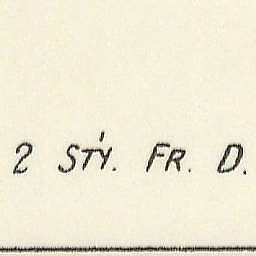 2 STY. FR. D.